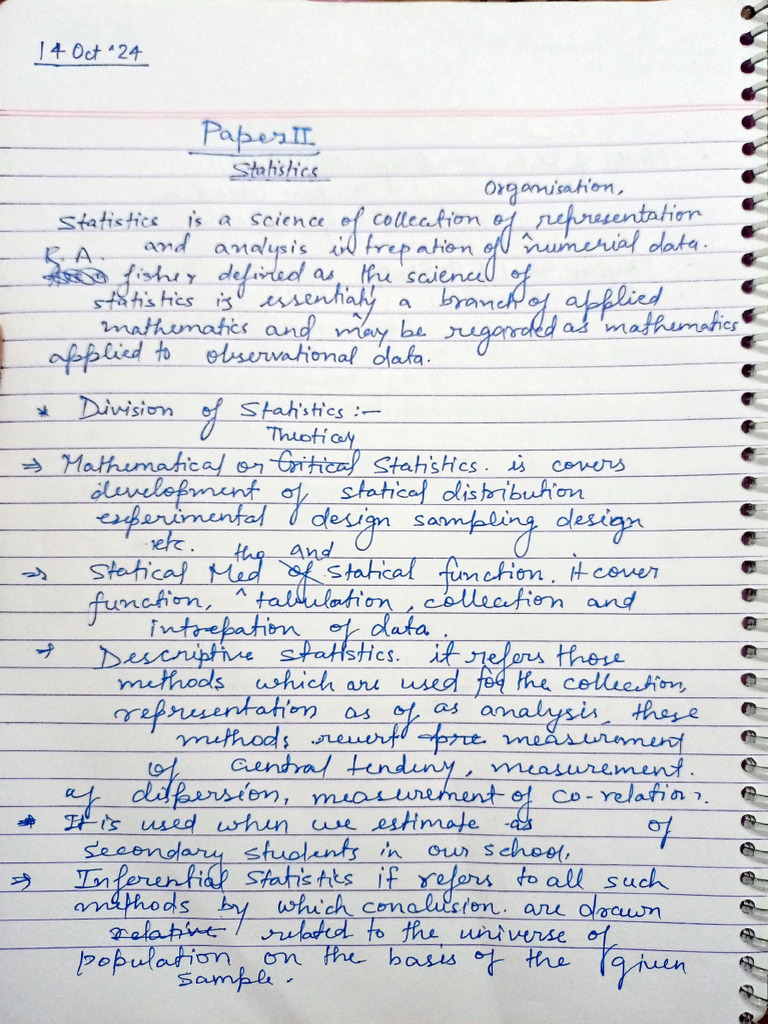 14 Oct '24
Paper II
Statistics
Organisation,
Statistics is a science of collection of representation
and analysis intrepation of ^ numerial data.
R.A. fisher defined as the science of
statistics is essentialy a branch of applied
mathematics and may be regarded as mathematics
applied to observational data.
* Division of Statistics :-
Theoticay
⇒ Mathematical or Critical Statistics. is covers
development of statical distribution
experimental design sampling design
etc. the and
⇒ Statical Med of Statical function. it cover
function, ^ tabulation, collection and
intrepation of data.
→ Descriptive statistics. it refers those
methods which are used for the collection,
representation as of as analysis, these
methods revert measurement
of central tendny, measurement.
of dispersion, measurement of co-relation.
* It is used when we estimate as of
secondary students in our school.
⇒ Inferential Statistics if refers to all such
methods by which conclusion. are drawn
relative related to the universe of
population on the basis of the given
sample.